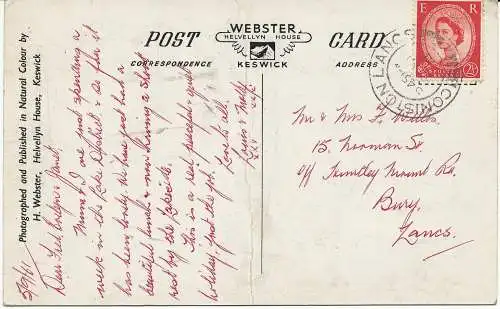 Photographed and Published in Natural Colour by
H. Webster, Helvellyn House, Keswick
POST
CORRESPONDENCE
WEBSTER
HELVELLYN HOUSE
KESWICK
CARD
ADDRESS
E R
2½D
CONISTON LANCS
29/6/61
Dear Fred, Evelyn & Janet,
Mum & I are just spending a
week in the Lake District & so far it
has been lovely. We have just had a
beautiful lunch & now having a short
rest by the Lakeside.
This is a real peaceful & quiet
holiday, just the job.
Love to all
& Nelly
xxx
Mr & Mrs F.
15, Norman St.
Off Huntley Mount Rd.
Bury,
Lancs.